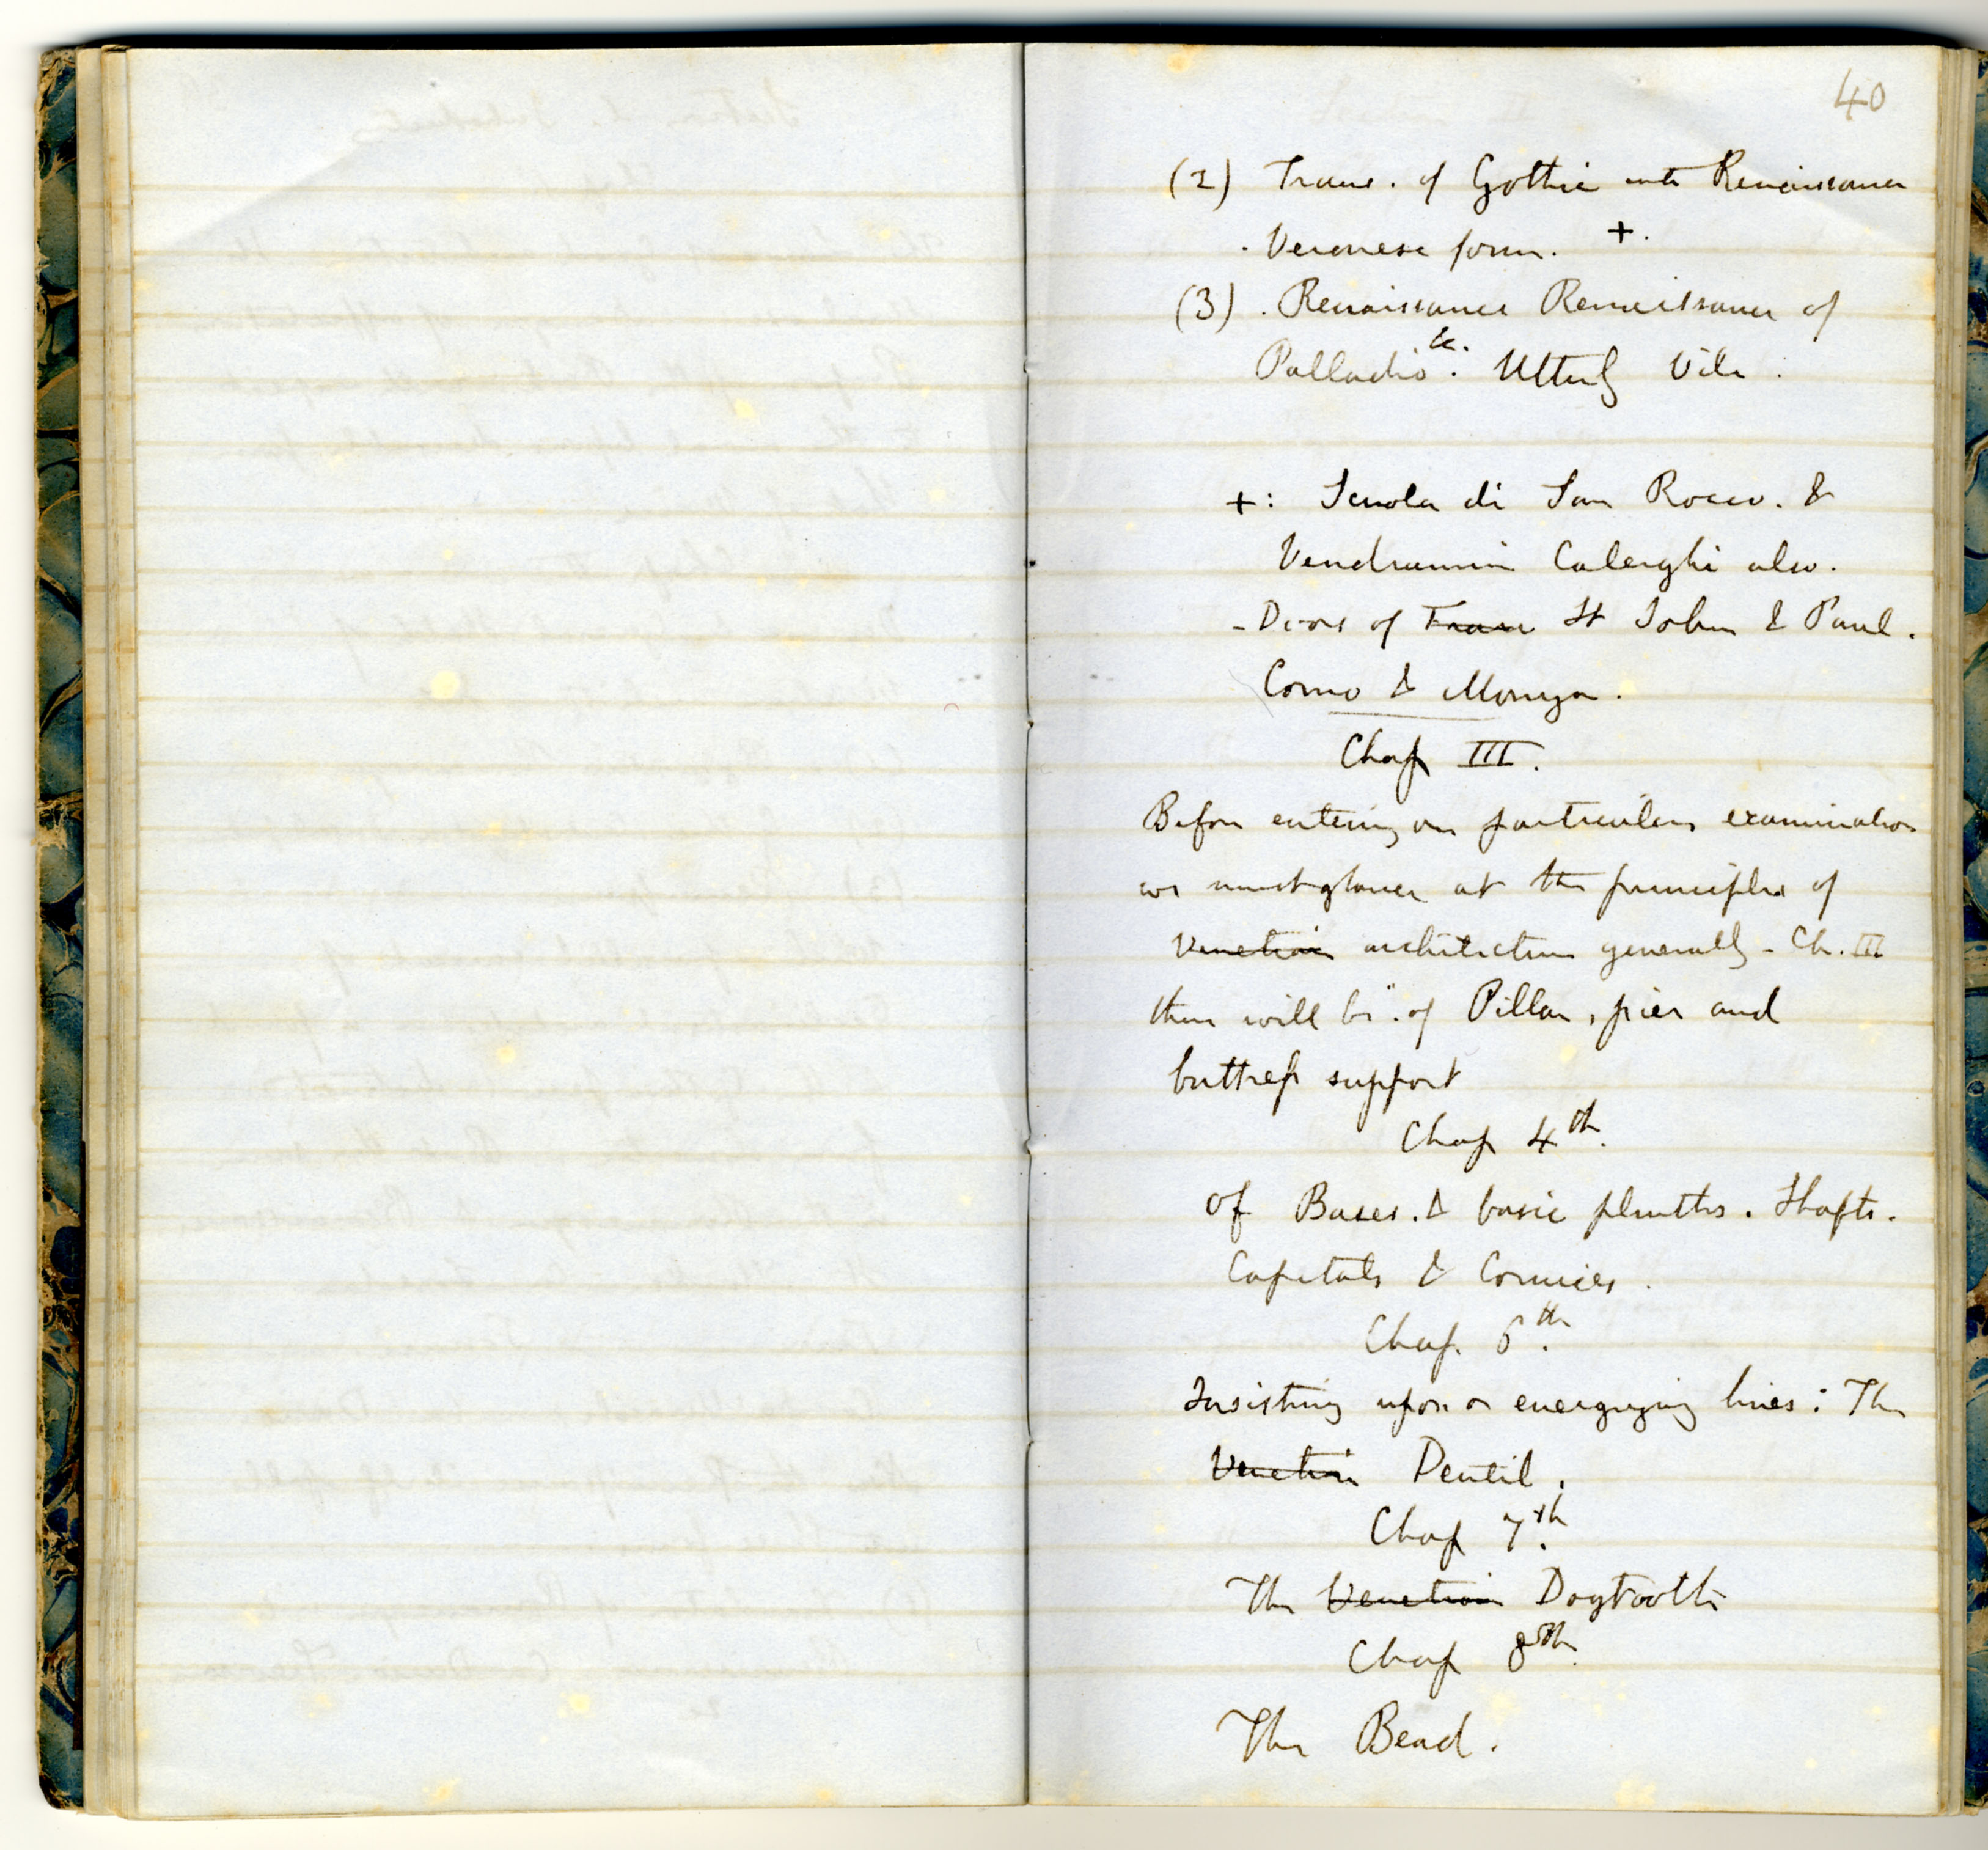 40
(2) Trans. of Gothic into Renaissance
. Veronese form. +.
(3) . Renaissance Renaissance of
Palladio &c. Utterly Vile.
+: Scuola di San Rocco. &
Vendramin Calerghi also.
- Doors of Frari St John & Paul.
Como & Monza.
Chap III.
Before entering on particular examination
we must glance at the principles of
Venetian architecture generally - Ch. III
then will be". of Pillar, pier and
buttress support
Chap 4th.
Of Bases. & basic plinths. Shafts.
Capitals & Cornices.
Chap. 6th.
Insisting upon or energizing lines: The
Venetian Dentil.
Chap 7th.
The Venetian Dogtooth
Chap 8th.
The Bead.